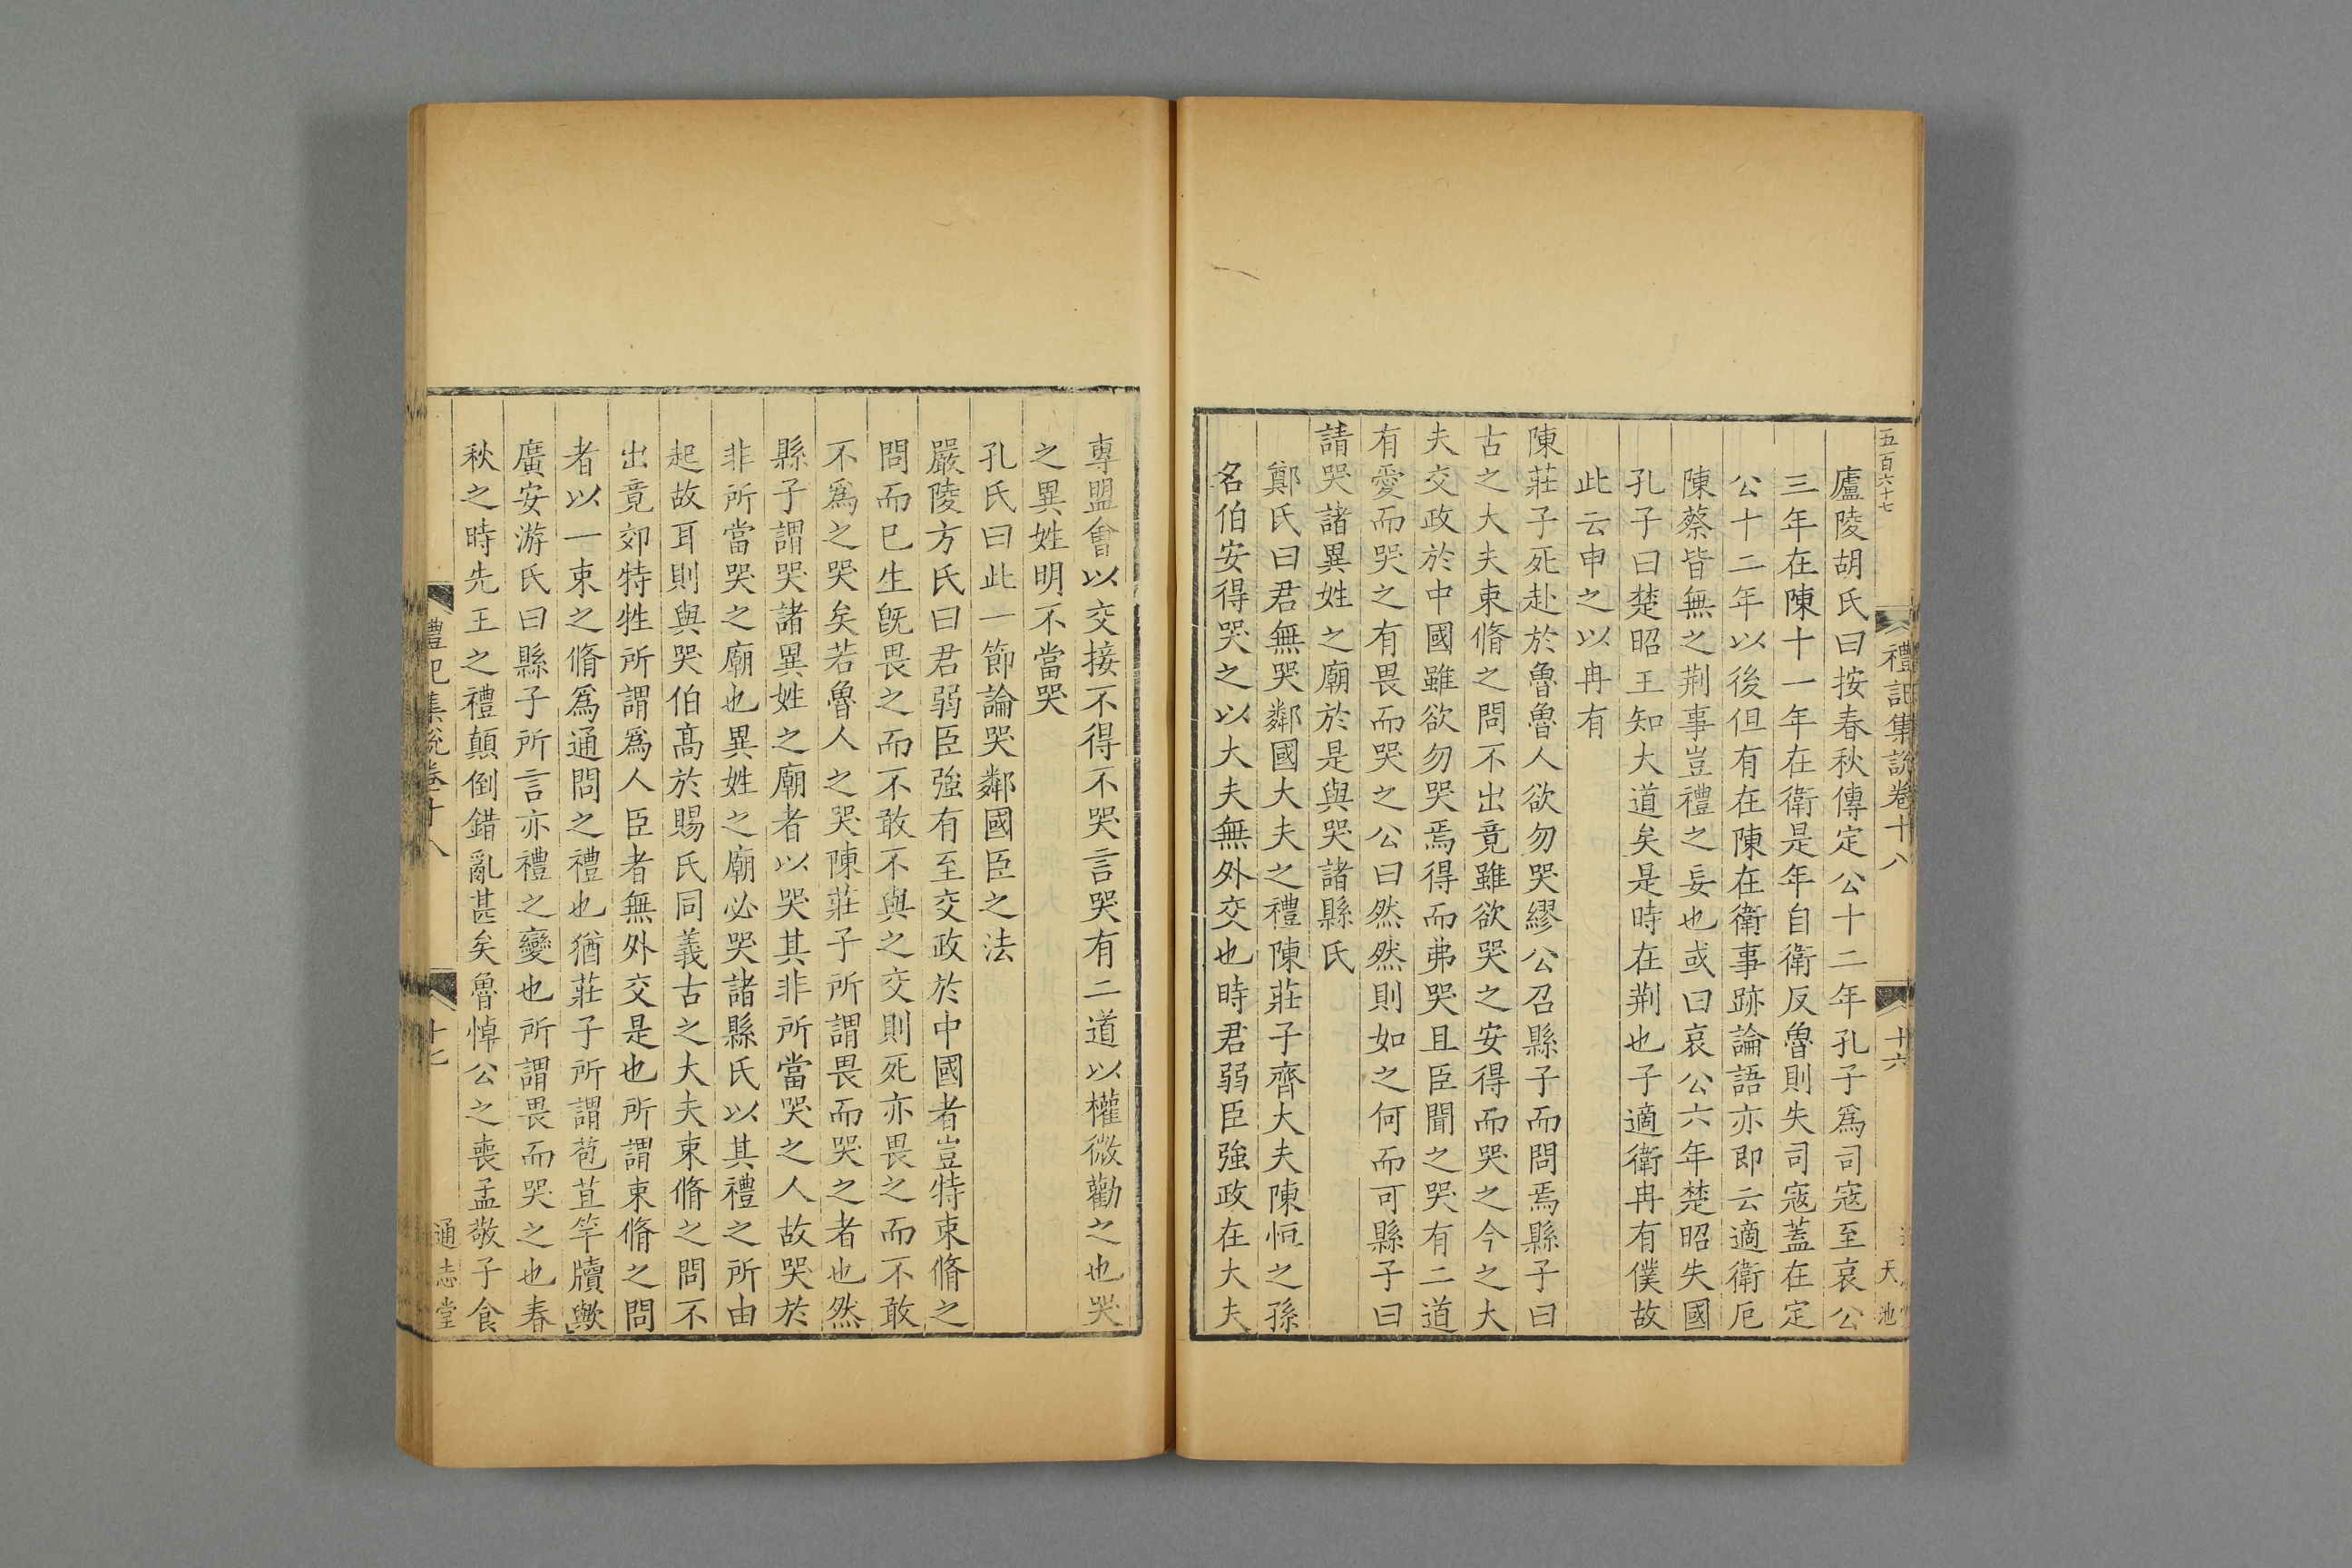 五百六十七
禮記集說卷十八
十六
天池
廬陵胡氏曰按春秋傳定公十二年孔子爲司寇至哀公
三年在陳十一年在衛是年自衛反魯則失司寇蓋在定
公十二年以後但有在陳在衛事跡論語亦即云適衛厄
陳蔡皆無之荆事豈禮之妄也或曰哀公六年楚昭失國
孔子曰楚昭王知大道矣是時在荆也子適衛冉有僕故
此云申之以冉有
陳莊子死赴於魯魯人欲勿哭繆公召縣子而問焉縣子曰
古之大夫束脩之問不出竟雖欲哭之安得而哭之今之大
夫交政於中國雖欲勿哭焉得而弗哭且臣聞之哭有二道
有愛而哭之有畏而哭之公曰然然則如之何而可縣子曰
請哭諸異姓之廟於是與哭諸縣氏
鄭氏曰君無哭鄰國大夫之禮陳莊子齊大夫陳恒之孫
名伯安得哭之以大夫無外交也時君弱臣強政在大夫
專盟會以交接不得不哭言哭有二道以權微勸之也哭
之異姓明不當哭
孔氏曰此一節論哭鄰國臣之法
嚴陵方氏曰君弱臣強有至交政於中國者豈特束脩之
問而已生旣畏之而不敢不與之交則死亦畏之而不敢
不爲之哭矣若魯人之哭陳莊子所謂畏而哭之者也然
縣子謂哭諸異姓之廟者以哭其非所當哭之人故哭於
非所當哭之廟也異姓之廟必哭諸縣氏以其禮之所由
起故耳則與哭伯髙於賜氏同義古之大夫束脩之問不
出竟郊特牲所謂爲人臣者無外交是也所謂束脩之問
者以一束之脩爲通問之禮也猶莊子所謂苞苴竿牘歟
廣安游氏曰縣子所言亦禮之變也所謂畏而哭之也春
秋之時先王之禮顛倒錯亂甚矣魯悼公之喪孟敬子食
禮記集說卷十八
十七
通志堂